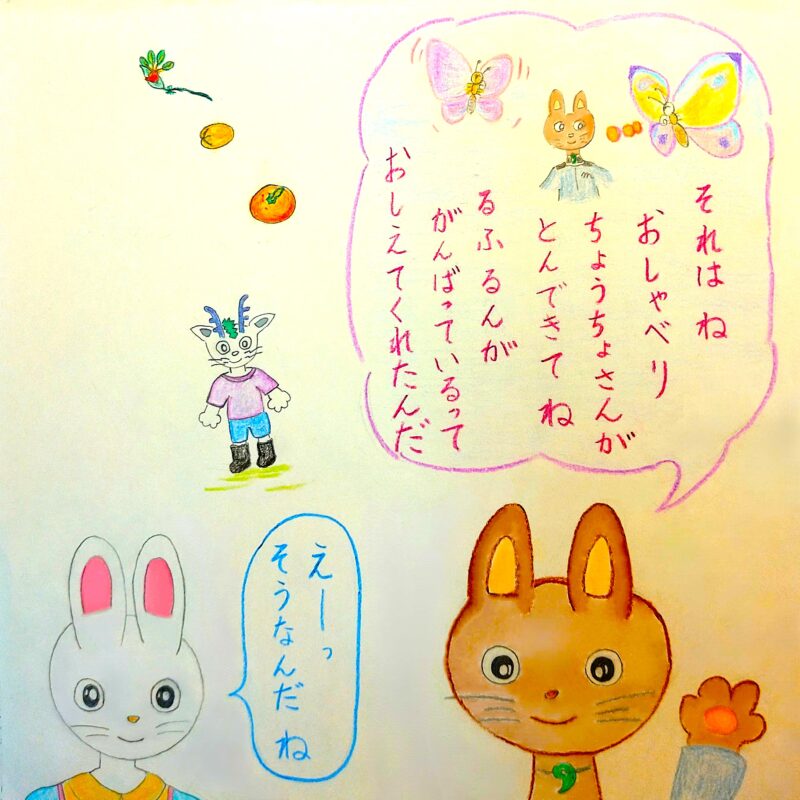 それは ね
おしゃべり
ちょうちょさんが
とんできて ね
るふるんが
がんばっているって
おしえてくれたんだ
えーっ
そうなんだ ね